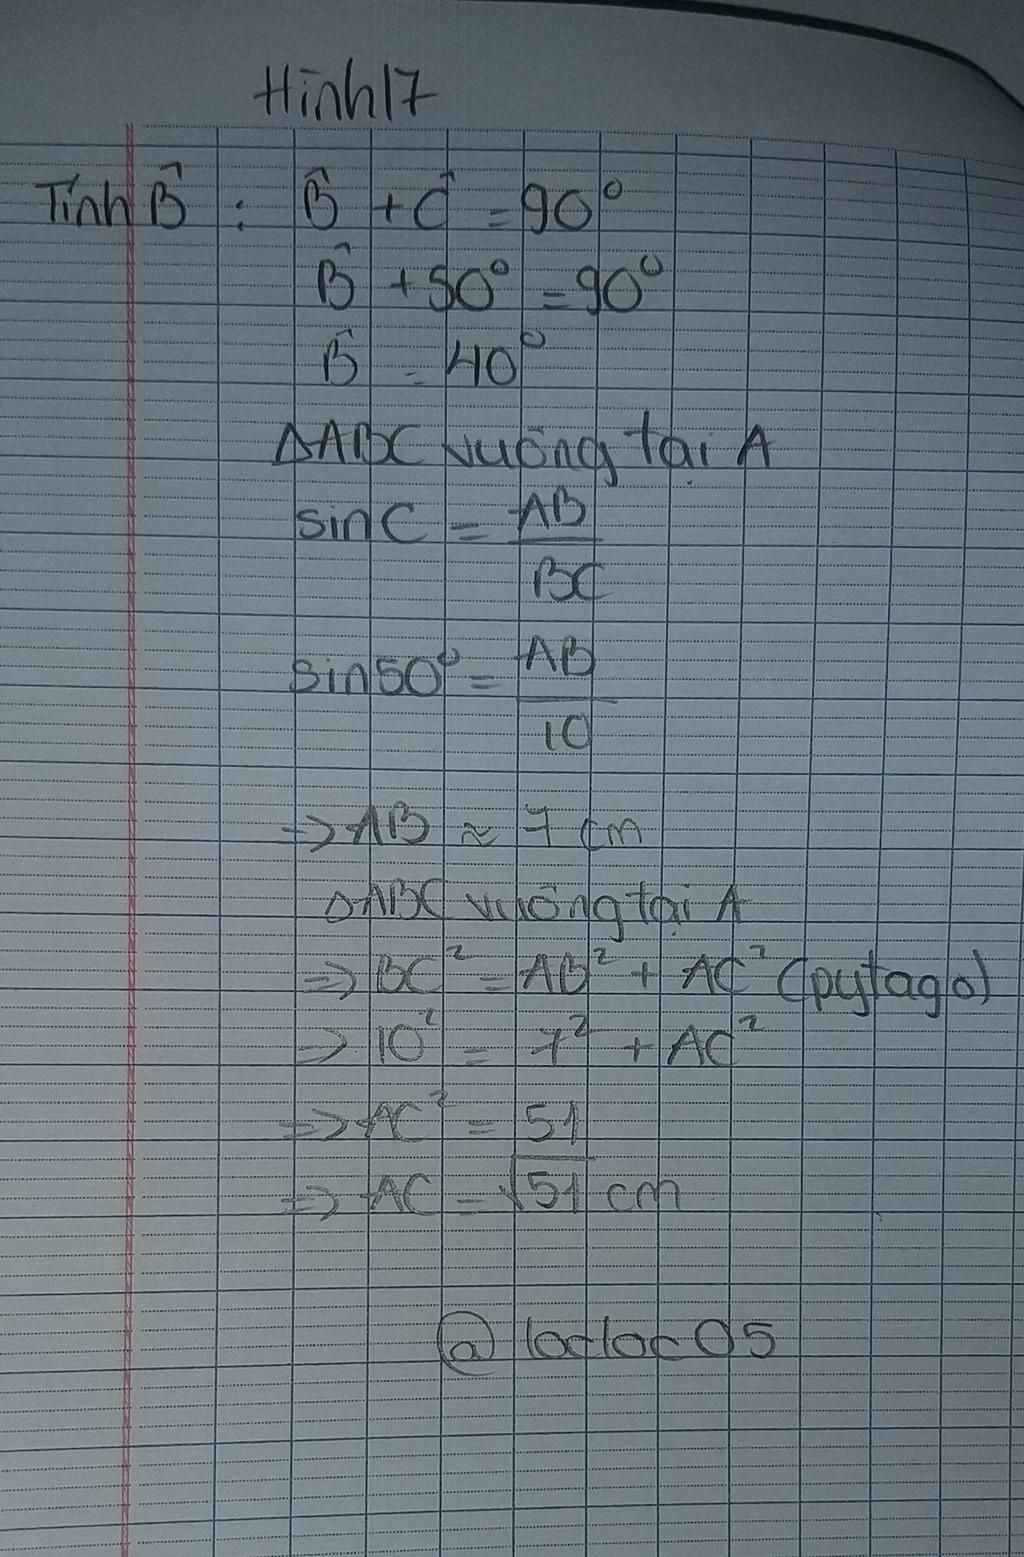 Hình 17
Tính B̂ : B̂ + Ĉ = 90°
B̂ + 50° = 90°
B̂ = 40°
ΔABC vuông tại A
sin C = AB/BC
sin 50° = AB/10
=> AB ≈ 7 cm
ΔABC vuông tại A
=> BC² = AB² + AC² (pytago)
=> 10² = 7² + AC²
=> AC² = 51
=> AC = √51 cm
@ locloc05